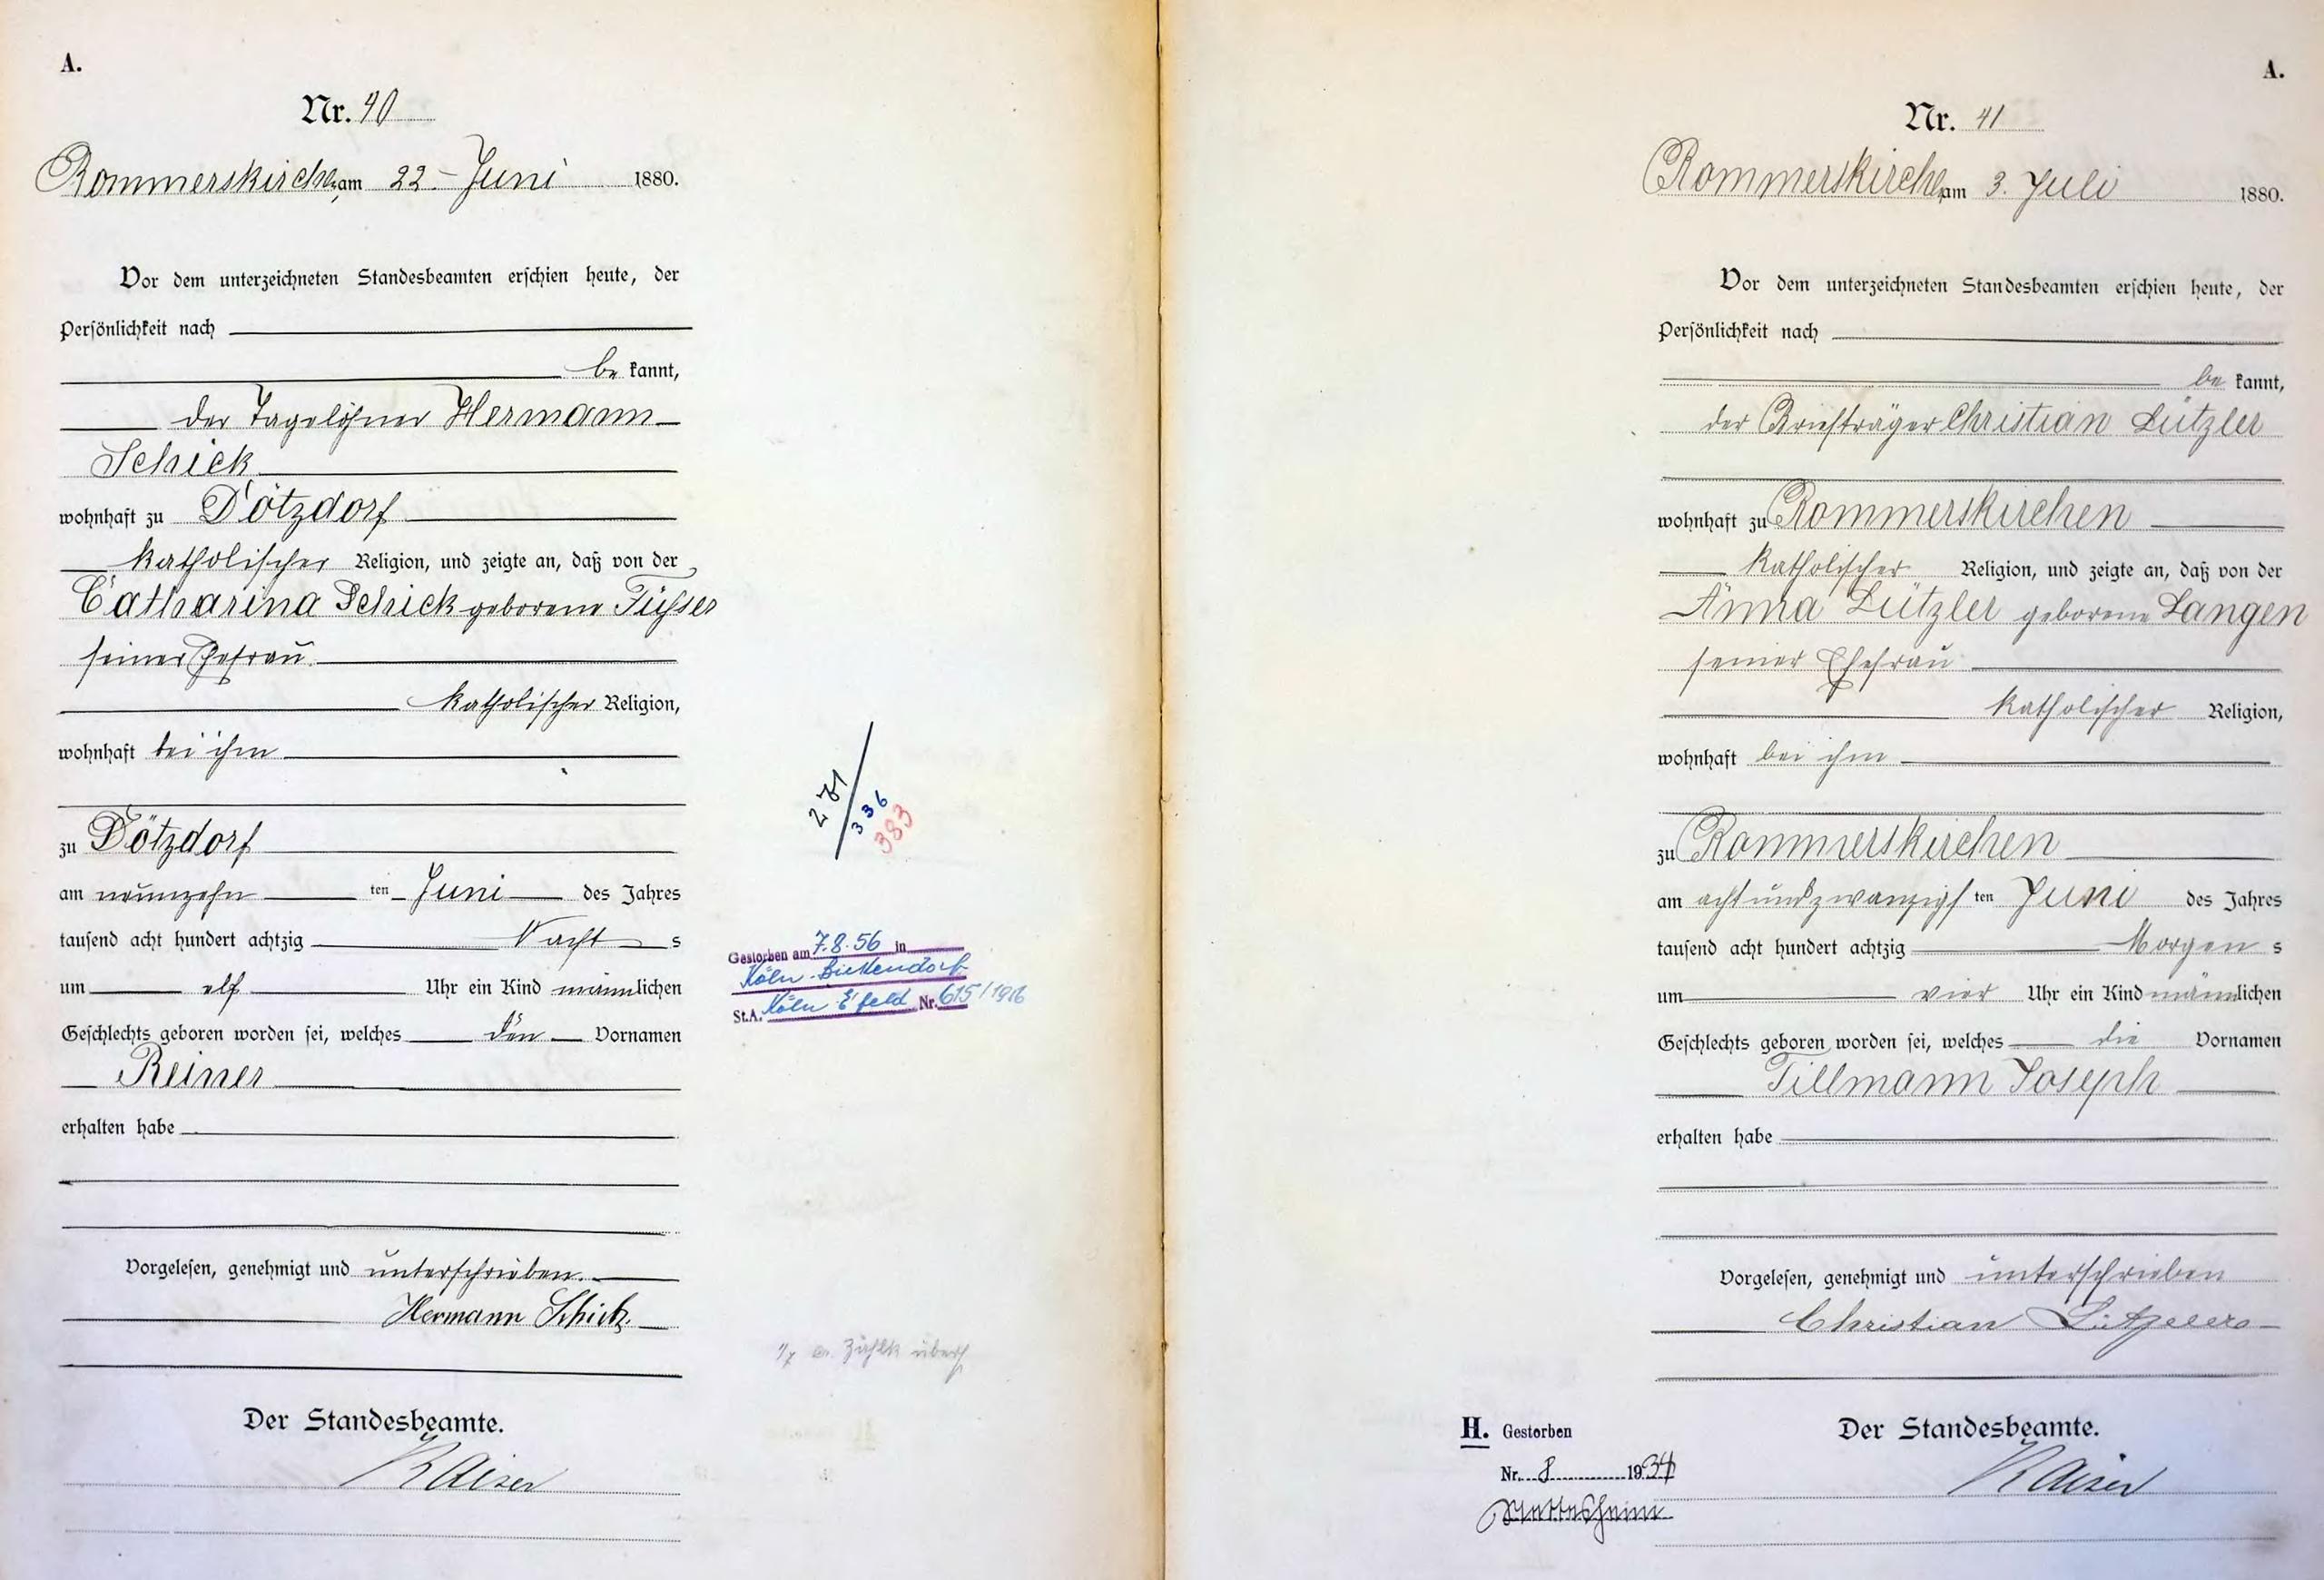 A.
Nr. 40
Rommerskirchen, am 22. Juni 1880.
Vor dem unterzeichneten Standesbeamten erschien heute, der
Persönlichkeit nach
be kannt,
der Tagelöhner Hermann
Schick
wohnhaft zu Dötzdorf
katholischer Religion, und zeigte an, daß von der
Catharina Schick geborene Füsser
seiner Ehefrau
katholischer Religion,
wohnhaft bei ihm
zu Dötzdorf
am neunzehn ten Juni des Jahres
tausend acht hundert achtzig Nacht s
um elf Uhr ein Kind männlichen
Geschlechts geboren worden sei, welches den Vornamen
Reiner
erhalten habe
Vorgelesen, genehmigt und unterschrieben.
Hermann Schick.
Der Standesbeamte.
Kaiser
271
336
383
Gestorben am 7.8.56 in
Köln-Bickendorf
St.A. Köln E'feld Nr. 615/1956
A.
Nr. 41
Rommerskirchen, am 3. Juli 1880.
Vor dem unterzeichneten Standesbeamten erschien heute, der
Persönlichkeit nach
be kannt,
der Briefträger Christian Lützler
wohnhaft zu Rommerskirchen
katholischer Religion, und zeigte an, daß von der
Anna Lützler geborene Langen
seiner Ehefrau
katholischer Religion,
wohnhaft bei ihm
zu Rommerskirchen
am acht und zwanzigs ten Juni des Jahres
tausend acht hundert achtzig Morgen s
um vier Uhr ein Kind männlichen
Geschlechts geboren worden sei, welches die Vornamen
Tillmann Joseph
erhalten habe
Vorgelesen, genehmigt und unterschrieben
Christian Lützeler
Der Standesbeamte.
Kaiser
H. Gestorben
Nr. 8 1934